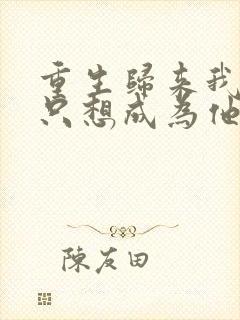 重生歸來我
只想成為他
陳友田